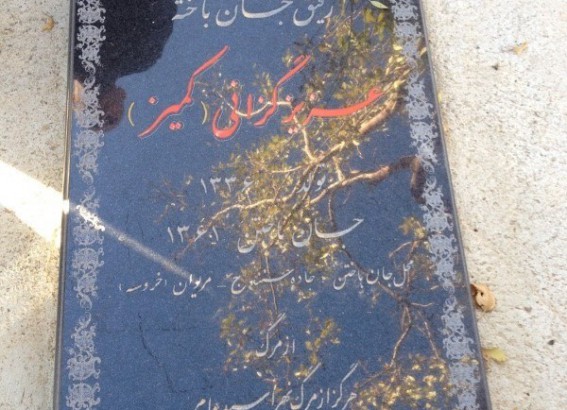 رفیق جان باخته
عزیز گزانی (کمیز)
تولد: ۱۳۳۶
جان باختن ۱۳۶۱
محل جان باختن - جاده سنندج - مریوان (خروسه)
از مرگ
هرگز از مرگ نهراسیده‌ام